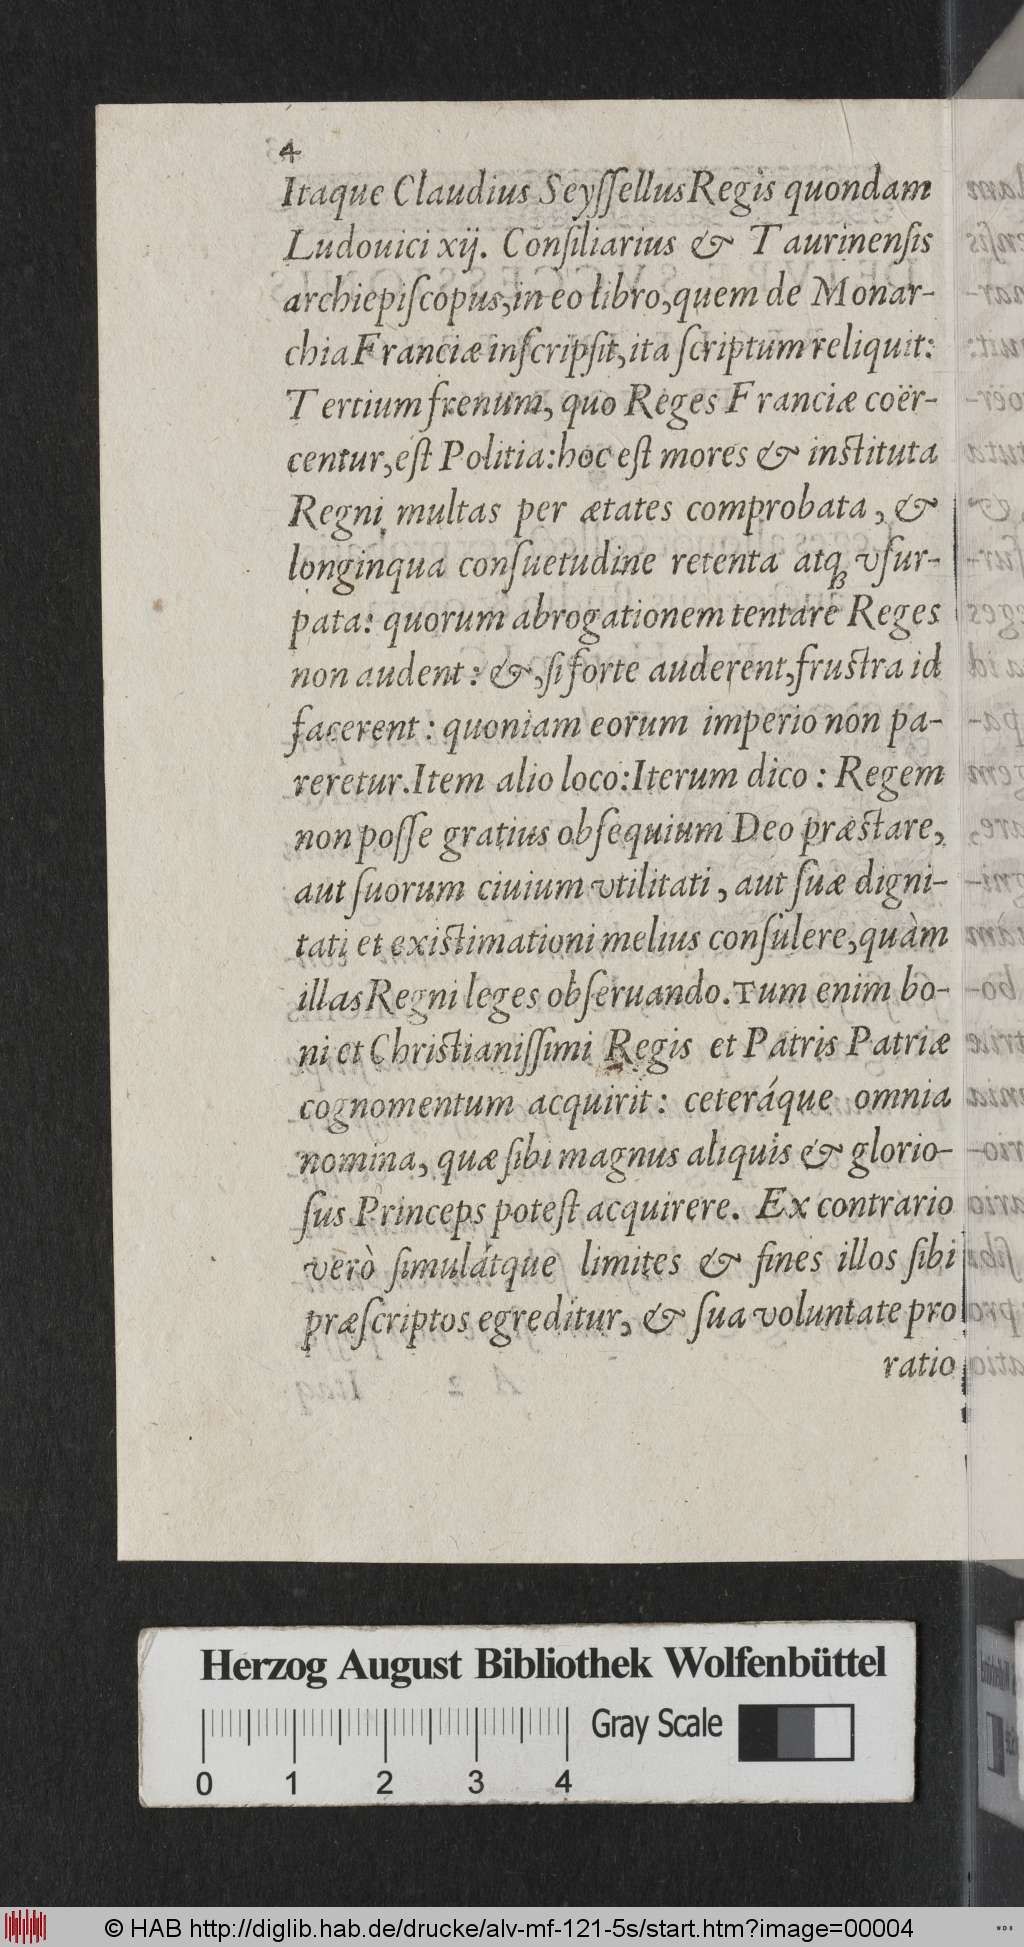 4
Itaque Claudius Seyſſellus Regis quondam
Ludouici xij. Conſiliarius & Taurinenſis
archiepiſcopus, in eo libro, quem de Monar-
chia Franciæ inſcripſit, ita ſcriptum reliquit:
Tertium frenum, quo Reges Franciæ coër-
centur, eſt Politia: hoc eſt mores & inſtituta
Regni multas per ætates comprobata, &
longinqua conſuetudine retenta atqꝫ vſur-
pata: quorum abrogationem tentare Reges
non audent: &, ſi forte auderent, fruſtra id
facerent: quoniam eorum imperio non pa-
reretur. Item alio loco: Iterum dico: Regem
non poſſe gratius obſequium Deo præſtare,
aut ſuorum ciuium vtilitati, aut ſuæ digni-
tati et exiſtimationi melius conſulere, quàm
illas Regni leges obſeruando. Tum enim bo-
ni et Chriſtianiſſimi Regis et Patris Patriæ
cognomentum acquirit: ceteráque omnia
nomina, quæ ſibi magnus aliquis & glorio-
ſus Princeps poteſt acquirere. Ex contrario
verò ſimulátque limites & fines illos ſibi
præſcriptos egreditur, & ſua voluntate pro
ratio
Herzog August Bibliothek Wolfenbüttel
Gray Scale
0 1 2 3 4
© HAB http://diglib.hab.de/drucke/alv-mf-121-5s/start.htm?image=00004